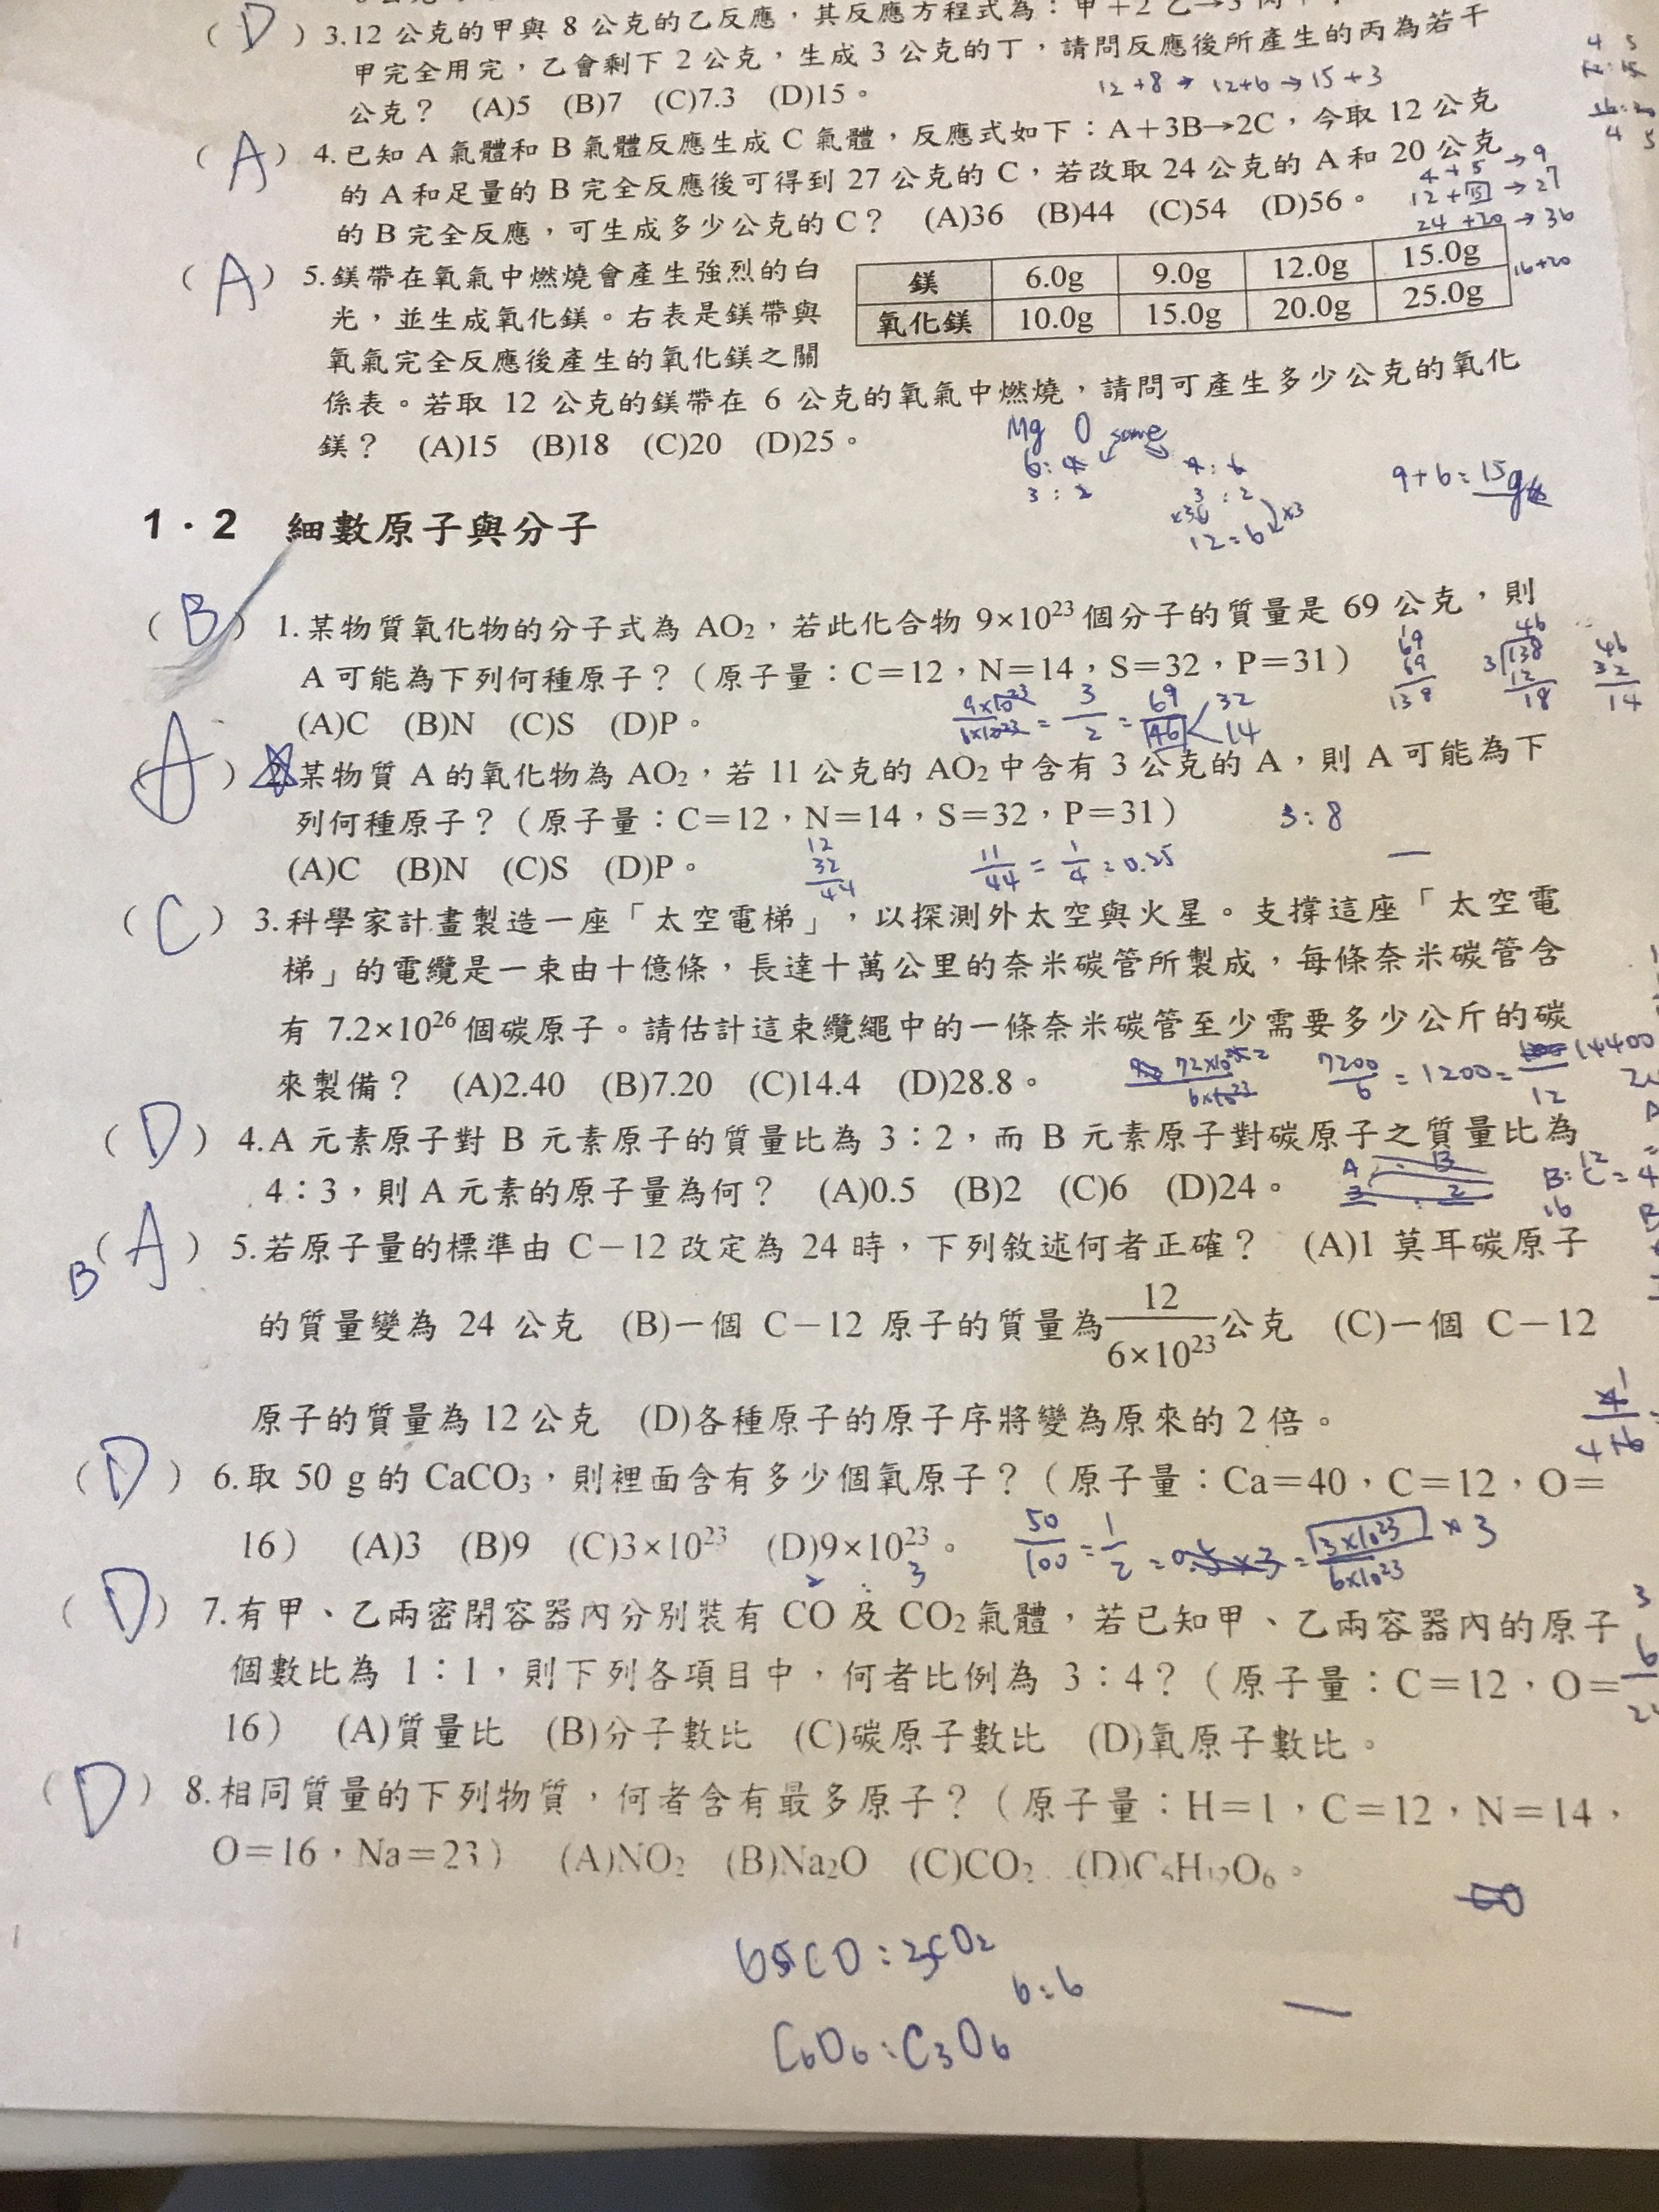 ( D ) 3.12 公克的甲與 8 公克的乙反應，其反應方程式為：甲＋2 乙→3
甲完全用完，乙會剩下 2 公克，生成 3 公克的丁，請問反應後所產生的丙為若干
公克？ (A)5 (B)7 (C)7.3 (D)15。
12+8 → 12+6 → 15+3
( A ) 4.已知 A 氣體和 B 氣體反應生成 C 氣體，反應式如下：A＋3B→2C，今取 12 公克
的 A 和足量的 B 完全反應後可得到 27 公克的 C，若改取 24 公克的 A 和 20 公克
的 B 完全反應，可生成多少公克的 C？ (A)36 (B)44 (C)54 (D)56。
4+5 → 9
12+15 → 27
24+20 → 36
16+20
( A ) 5.鎂帶在氧氣中燃燒會產生強烈的白
光，並生成氧化鎂。右表是鎂帶與
氧氣完全反應後產生的氧化鎂之關
係表。若取 12 公克的鎂帶在 6 公克的氧氣中燃燒，請問可產生多少公克的氧化
鎂？ (A)15 (B)18 (C)20 (D)25。
鎂 6.0g 9.0g 12.0g 15.0g
氧化鎂 10.0g 15.0g 20.0g 25.0g
Mg O same
6:4
3:2
3:2
×3
12=6
9+6=15g
1．2 細數原子與分子
( B ) 1.某物質氧化物的分子式為 AO₂，若此化合物 9×10²³ 個分子的質量是 69 公克，則
A 可能為下列何種原子？（原子量：C＝12，N＝14，S＝32，P＝31）
(A)C (B)N (C)S (D)P。
9×10²³/6×10²³ = 3/2 = 69/46 < 32 14
69 69 138
3 138 46 12 18
46 32 14
( A ) 2.某物質 A 的氧化物為 AO₂，若 11 公克的 AO₂ 中含有 3 公克的 A，則 A 可能為下
列何種原子？（原子量：C＝12，N＝14，S＝32，P＝31）
3:8
(A)C (B)N (C)S (D)P。
12 32 44
11/44 = 1/4 = 0.25
( C ) 3.科學家計畫製造一座「太空電梯」，以探測外太空與火星。支撐這座「太空電
梯」的電纜是一束由十億條，長達十萬公里的奈米碳管所製成，每條奈米碳管含
有 7.2×10²⁶ 個碳原子。請估計這束纜繩中的一條奈米碳管至少需要多少公斤的碳
來製備？ (A)2.40 (B)7.20 (C)14.4 (D)28.8。
7200/6 = 1200 = 14400/12
( D ) 4.A 元素原子對 B 元素原子的質量比為 3：2，而 B 元素原子對碳原子之質量比為
4：3，則 A 元素的原子量為何？ (A)0.5 (B)2 (C)6 (D)24。
A B
3 : 2
12
B:C=4
16
B ( A ) 5.若原子量的標準由 C－12 改定為 24 時，下列敘述何者正確？ (A)1 莫耳碳原子
的質量變為 24 公克 (B)一個 C－12 原子的質量為 12/6×10²³ 公克 (C)一個 C－12
原子的質量為 12 公克 (D)各種原子的原子序將變為原來的 2 倍。
( D ) 6.取 50 g 的 CaCO₃，則裡面含有多少個氧原子？（原子量：Ca＝40，C＝12，O＝
16） (A)3 (B)9 (C)3×10²³ (D)9×10²³。
50/100 = 1/2 = 3×10²³/6×10²³ ×3
2 : 3
( D ) 7.有甲、乙兩密閉容器內分別裝有 CO 及 CO₂ 氣體，若已知甲、乙兩容器內的原子
個數比為 1：1，則下列各項目中，何者比例為 3：4？（原子量：C＝12，O＝
16） (A)質量比 (B)分子數比 (C)碳原子數比 (D)氧原子數比。
( D ) 8.相同質量的下列物質，何者含有最多原子？（原子量：H＝1，C＝12，N＝14，
O＝16，Na＝23） (A)NO₂ (B)Na₂O (C)CO₂ (D)C₆H₁₂O₆。
6:6
C₆O₆:C₃O₆